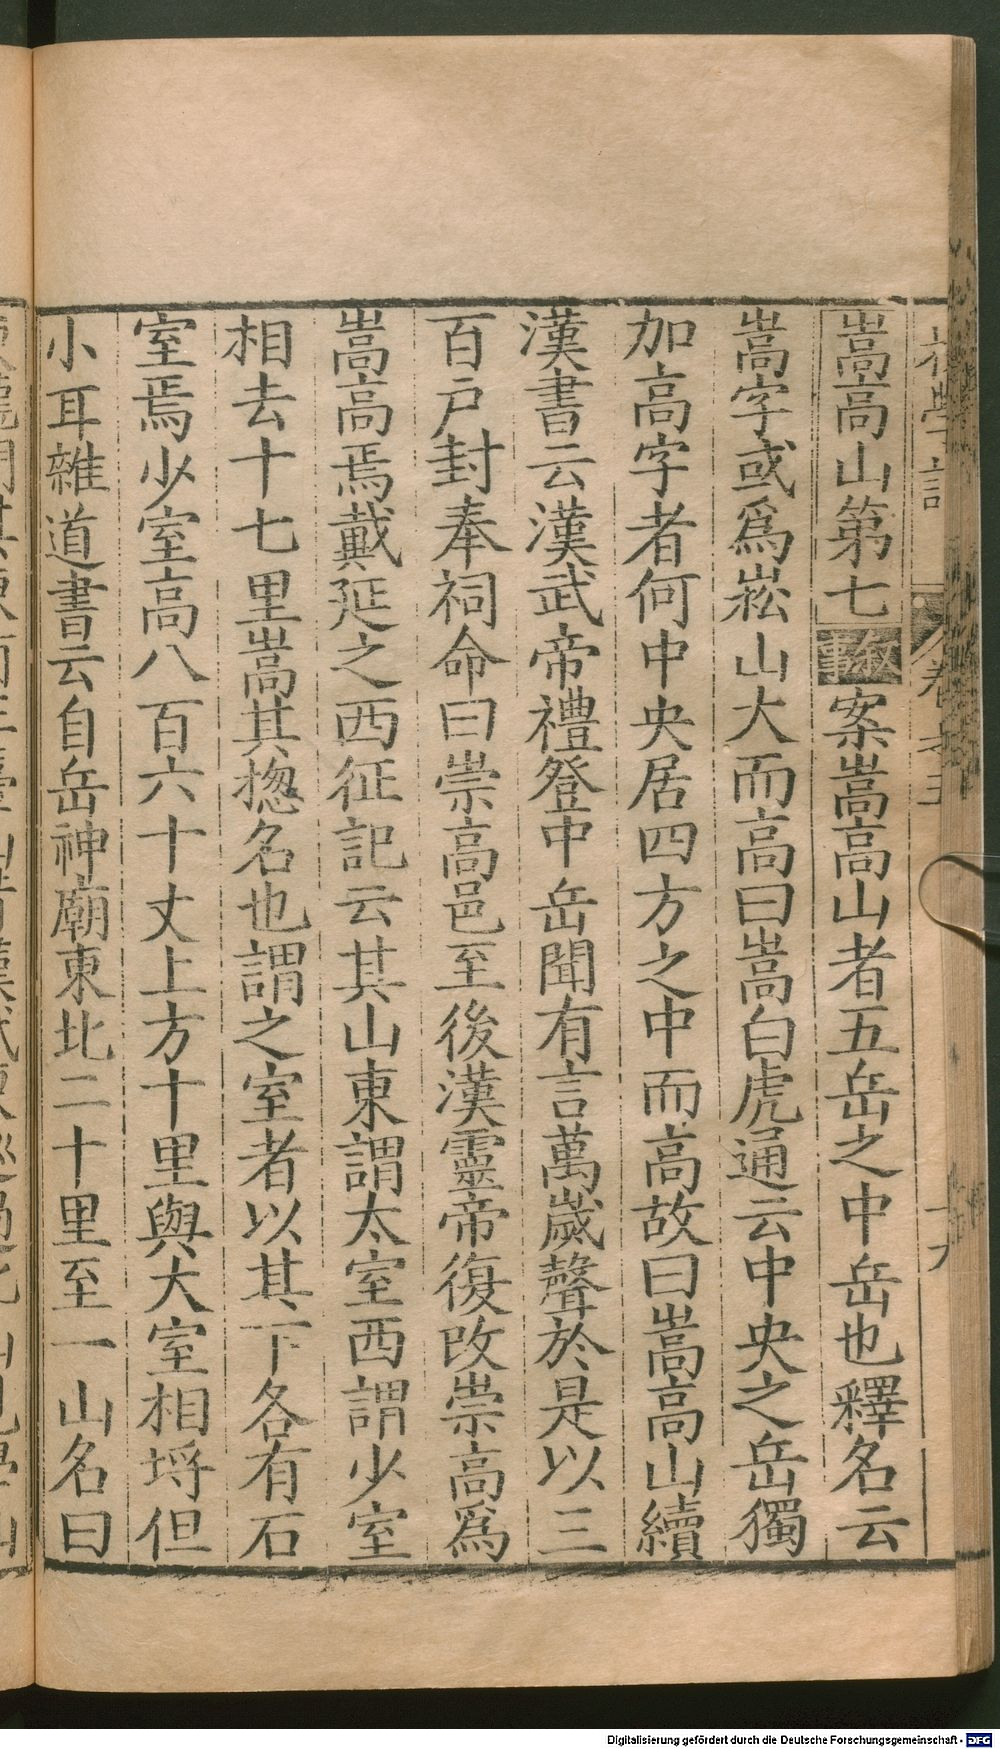 嵩高山第七 叙事 案嵩高山者五岳之中岳也釋名云
嵩字或爲崧山大而高曰嵩白虎通云中央之岳獨
加高字者何中央居四方之中而高故曰嵩高山續
漢書云漢武帝禮登中岳聞有言萬歲聲於是以三
百户封奉祠命曰崇高邑至後漢靈帝復改崇高爲
嵩高焉戴延之西征記云其山東謂太室西謂少室
相去十七里嵩其揔名也謂之室者以其下各有石
室焉少室高八百六十丈上方十里與大室相埒但
小耳雜道書云自岳神廟東北二十里至一山名曰
Digitalisierung gefördert durch die Deutsche Forschungsgemeinschaft - DFG